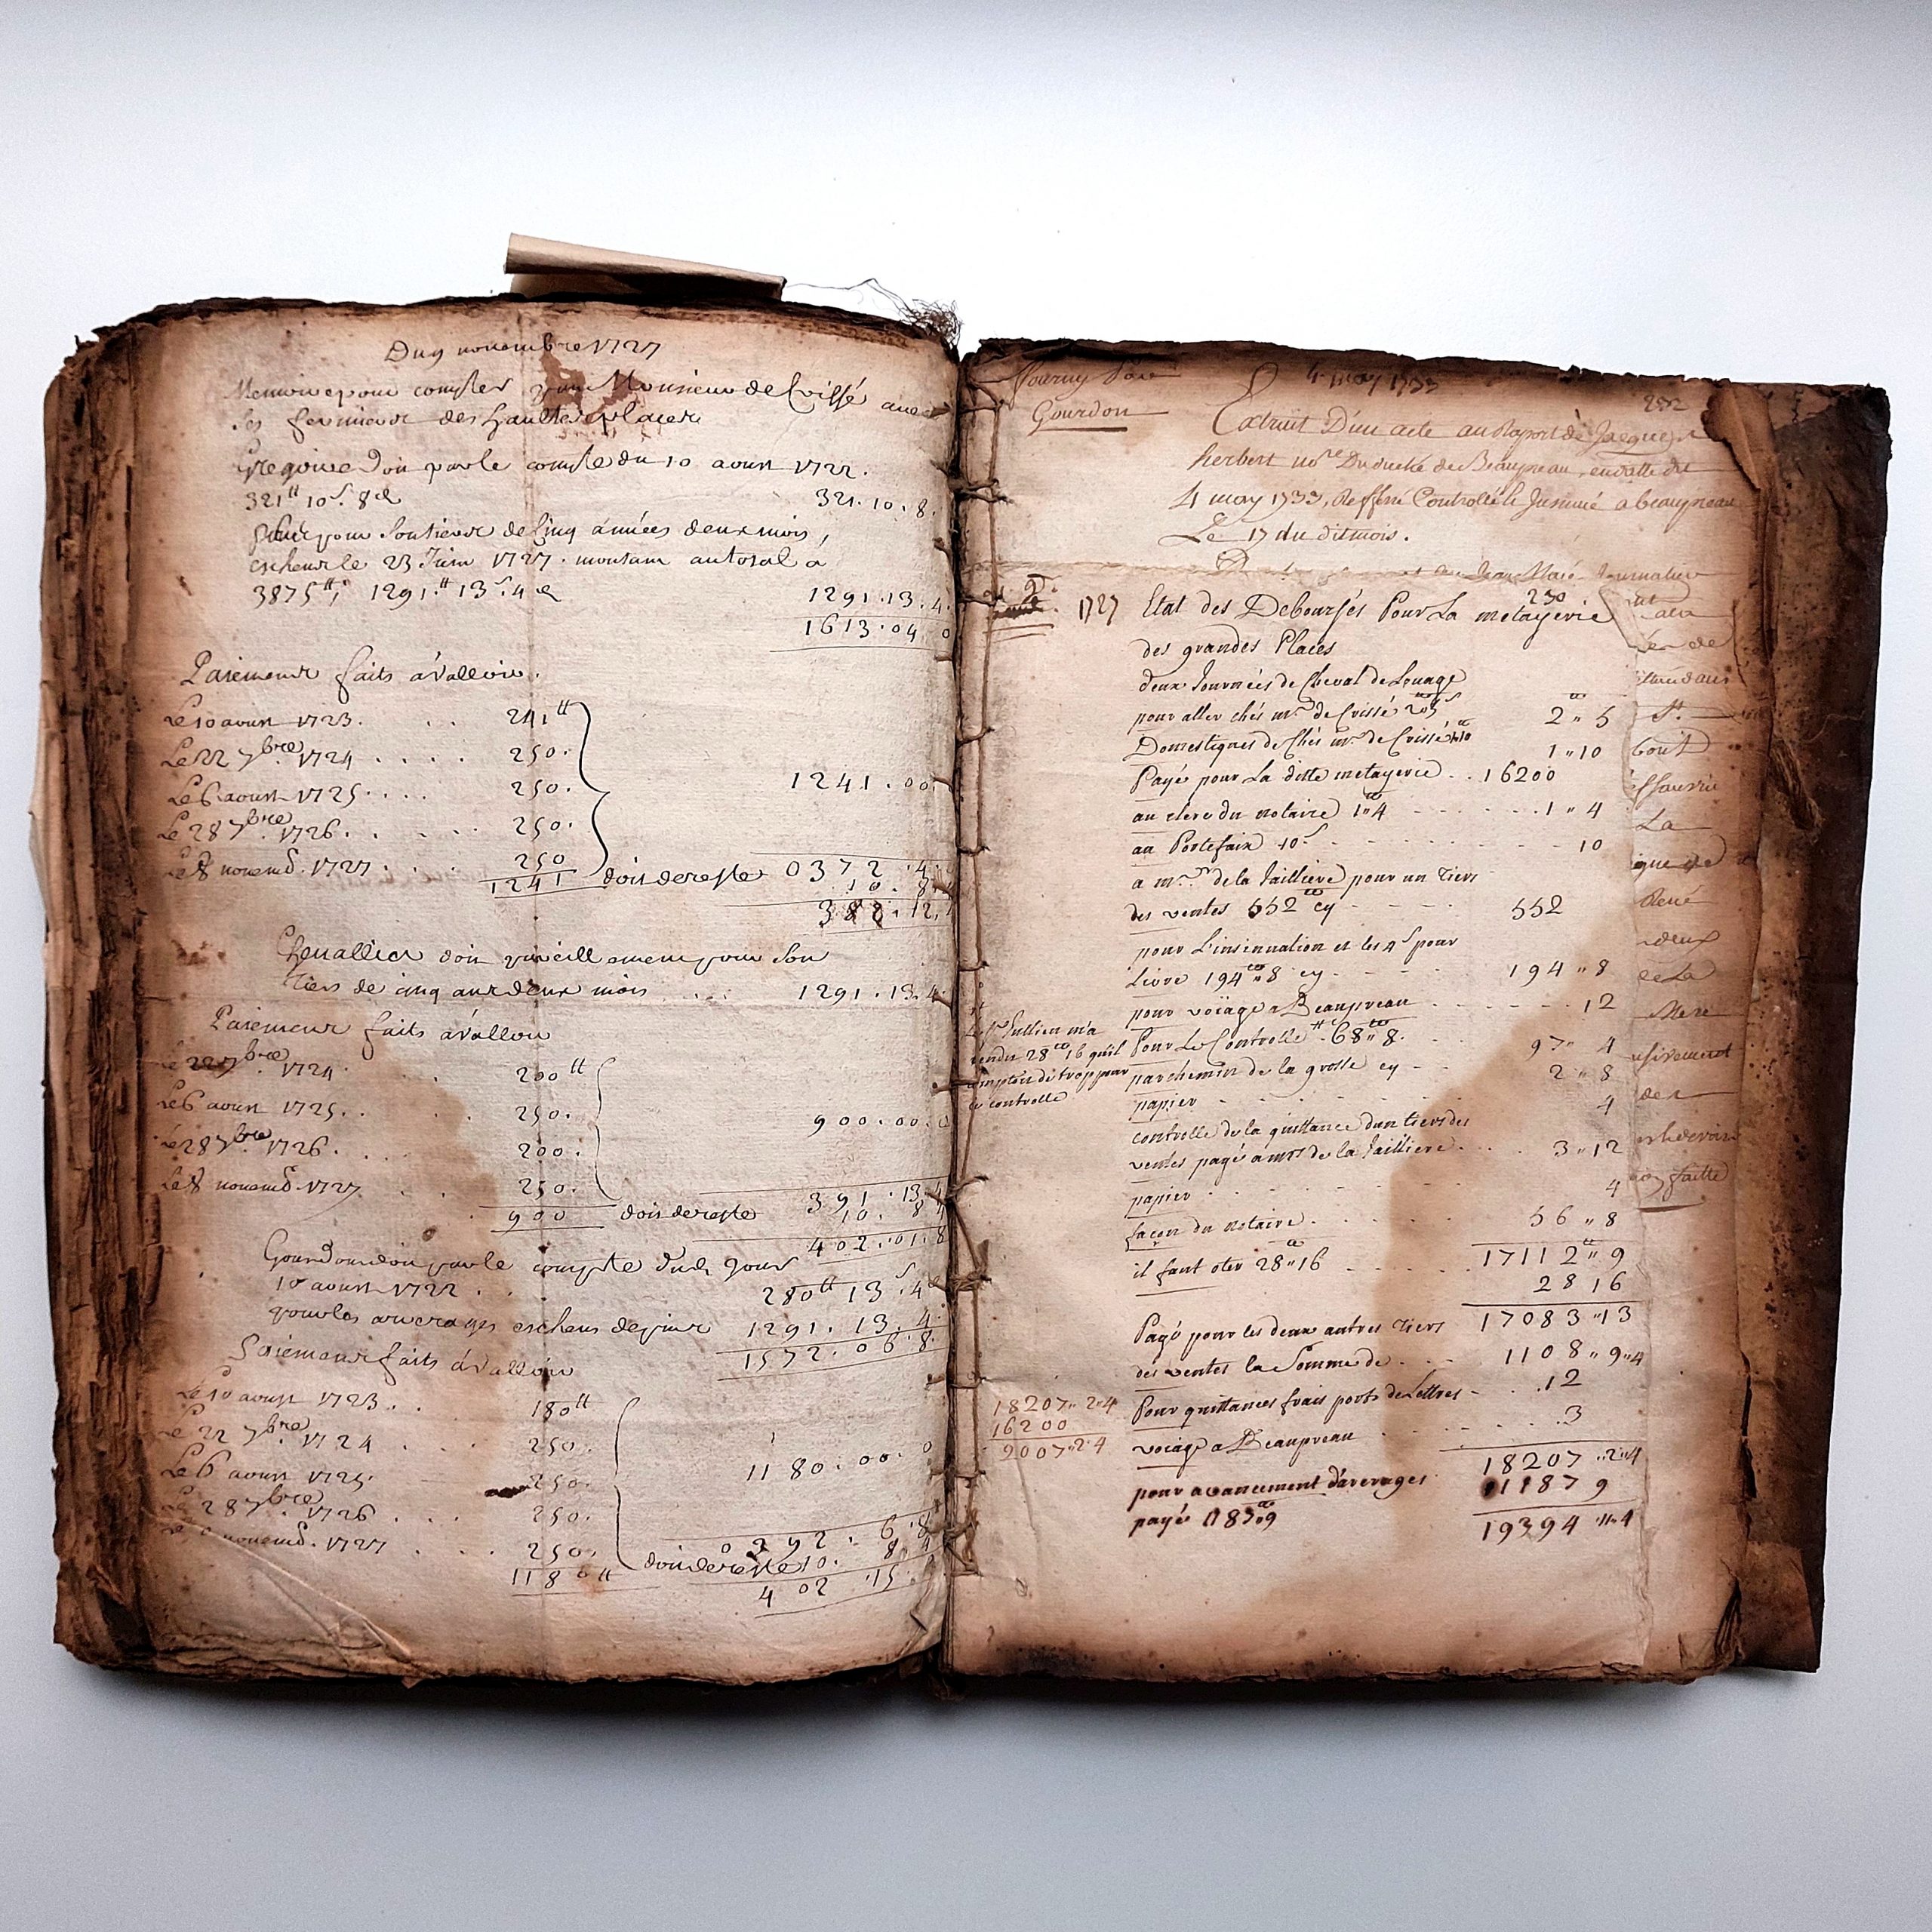 Du 9 nouembre 1727
Memoire pour compter pour Monsieur de Crissé auec
les fermieur des haultes places
Gregoire doit par le compte du 10 aoust 1722.
321ᵗᵗ 10ˢ. 8d 321. 10. 8.
Plus pour son tiers de Cinq années deux mois,
escheus le 23 Juin 1727. montant au total a
3875ᵗᵗ, 1291.ᵗᵗ 13ˢ. 4d 1291. 13. 4.
1613. 04. 0
Paiemens faits a valloir.
Le 10 aoust 1723. . . . 241ᵗᵗ
Le 22 7bre. 1724 . . . . 250.
Le 6 aoust 1725. . . . 250. 1241. 00.
Le 28 7bre. 1726. . . . 250.
Le 8 nouemb. 1727. . . . 250
1241 doit de reste 0372. 4.
10. 8.
382. 12.
Cheuallier doit pareillement pour son
tiers de cinq ans deux mois . . . 1291. 13. 4.
Paiemens faits a valloir
Le 22 7bre 1724 . . 200ᵗᵗ
Le 6 aoust 1725. . . 250.
900. 00. 0
Le 28 7bre. 1726. . . . 200.
Le 8 nouemb. 1727. . . 250.
900 doit de reste 391. 13. 4
10. 8
402. 01. 8
Gourdon doit par le compte dud. jour
10 aoust 1722 . . 280ᵗᵗ 13ˢ. 4d
pour les arrerages escheus depuis 1291. 13. 4.
1572. 06. 8.
Paiemens faits a valloir
Le 10 aoust 1723. . . 180ᵗᵗ
Le 22 7bre. 1724 . . . 250.
Le 6 aoust 1725. 250. 1180. 00. 0
Le 28 7bre. 1726 . . . 250.
Le 8 nouemb. 1727 . . . 250.
1180ᵗᵗ doit de reste 0392. 6. 8
10. 8
402. 15
Gourdon
4 may 1733
252
Extrait D'un acte au Raport de Jacques
herbert noʳᵉ Du duché de Beaupreau, en datte du
4 may 1733, Controllé & Insinué a beaupreau
Le 17 du dit mois.
230
1727 Etat des Deboursés Pour La metayerie
des grandes Places
deux Journées de Cheval de Louage
pour aller chés mʳ. de Crissé 2"5ˢ 2 " 5
Domestiques de Chés mʳ. de Crissé 1"10 1 " 10
Payé pour La ditte metayerie . . 16200
au clerc du notaire 1"4 - - - - . 1 " 4
au Portefaix 10ˢ. - - - - - 10
a mʳ. de la Jailliere pour un tiers
des ventes 552 cy - - - - 552
pour L'insinuation et les 4ˢ pour
Livre 194"8 cy. - - - 194 " 8
pour voiage a Beaupreau - - - - 12
Pour Le Controlle 68"8. - - 97" 4
parchemin de la grosse cy - - 2 " 8
papier - - - - - 4
controlle de la quittance d'un tiers des
ventes payé a mʳ de la Jailliere. . . . 3 " 12
papier - - - - - 4
façon du notaire. . . . . 56 " 8
17112 " 9
il faut oter 28"16 . . . . . 28 16
17083 " 13
Payé pour les deux autres tiers
des ventes la Somme de . . . 1108 " 9"4
Pour quittances frais ports de Lettres - . . 12
voiage a Beaupreau . . . . 3
18207 " 2"4
pour avancement d'arerages 1187 9
payé 1187"9
19394 " 11"4
Le Sʳ. Jullien m'a
rendu 28 16 qu'il
comptoit de trop pour
ce controlle
18207" 2"4
16200
2007" 2"4
de
Sᵗ.
bout
La
René
deux
de La
des